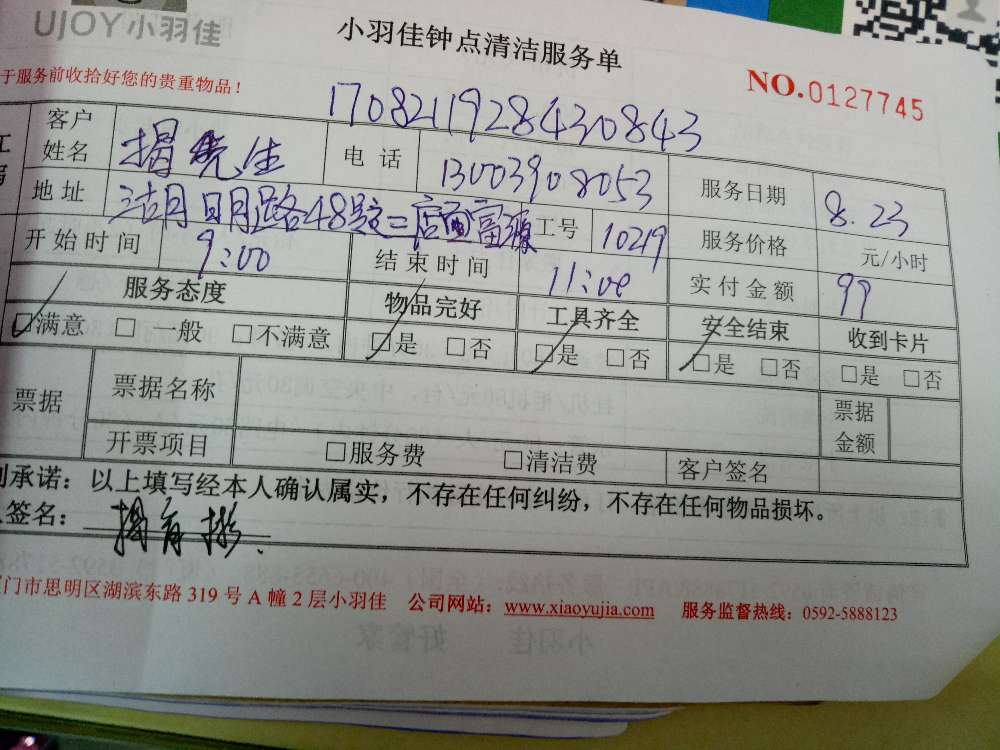 UJOY小羽佳
小羽佳钟点清洁服务单
于服务前收拾好您的贵重物品！
NO.0127745
170821192843 0843
客户姓名 揭先生 电话 13003908053 服务日期 8.23
地址 明路48号之二店面富源 工号 10219 服务价格 元/小时
开始时间 9:00 结束时间 11:00 实付金额 99
服务态度 物品完好 工具齐全 安全结束 收到卡片
☑满意 □一般 □不满意 ☑是 □否 ☑是 □否 ☑是 □否 □是 □否
票据 票据名称 票据金额
开票项目 □服务费 □清洁费 客户签名
承诺：以上填写经本人确认属实，不存在任何纠纷，不存在任何物品损坏。
签名： 揭育彬
门市思明区湖滨东路 319 号 A 幢 2 层小羽佳 公司网站：www.xiaoyujia.com 服务监督热线：0592-5888123